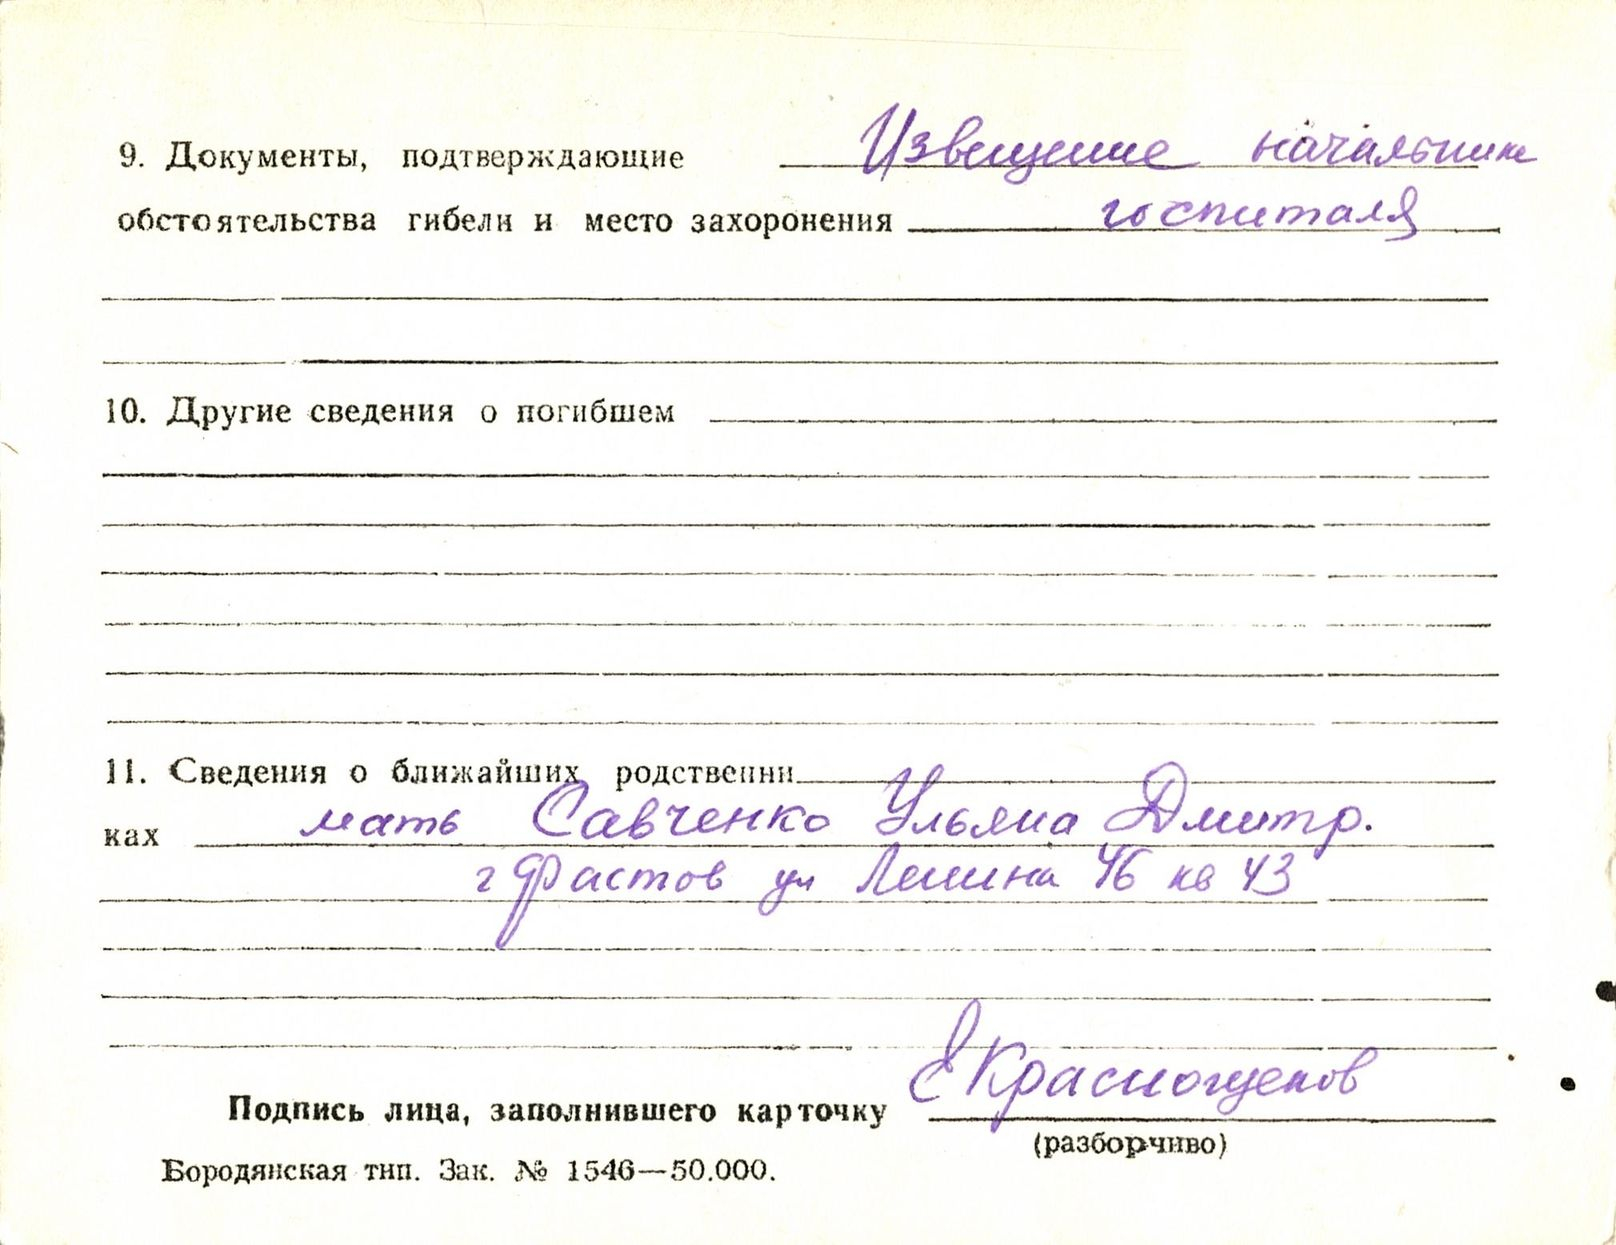 9. Документы, подтверждающие Извещение начальника
обстоятельства гибели и место захоронения госпиталя
10. Другие сведения о погибшем
11. Сведения о ближайших родственни
ках мать Савченко Ульяна Дмитр.
г Фастов ул Ленина 46 кв 43
Е Краснощеков
Подпись лица, заполнившего карточку
(разборчиво)
Бородянская тип. Зак. № 1546—50.000.